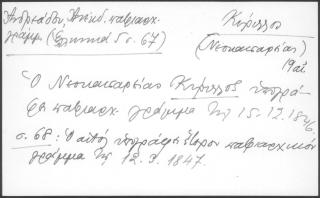 Ἀνδρεάδου, Ἀνέκδ. πατριαρχ.
γράμμ. (Ἑλληνικά 5 σ. 67)
Κύριλλος
(Νεοκαισαρείας)
19 αἰ.
Ὁ Νεοκαισαρείας Κύριλλος ὑπογρά-
φει πατριαρχ. γράμμα τῆς 15.12.1846.
σ. 68: Ὁ αὐτός ὑπογράφει ἕτερον πατριαρχικόν
γράμμα τῆς 12.9.1847.